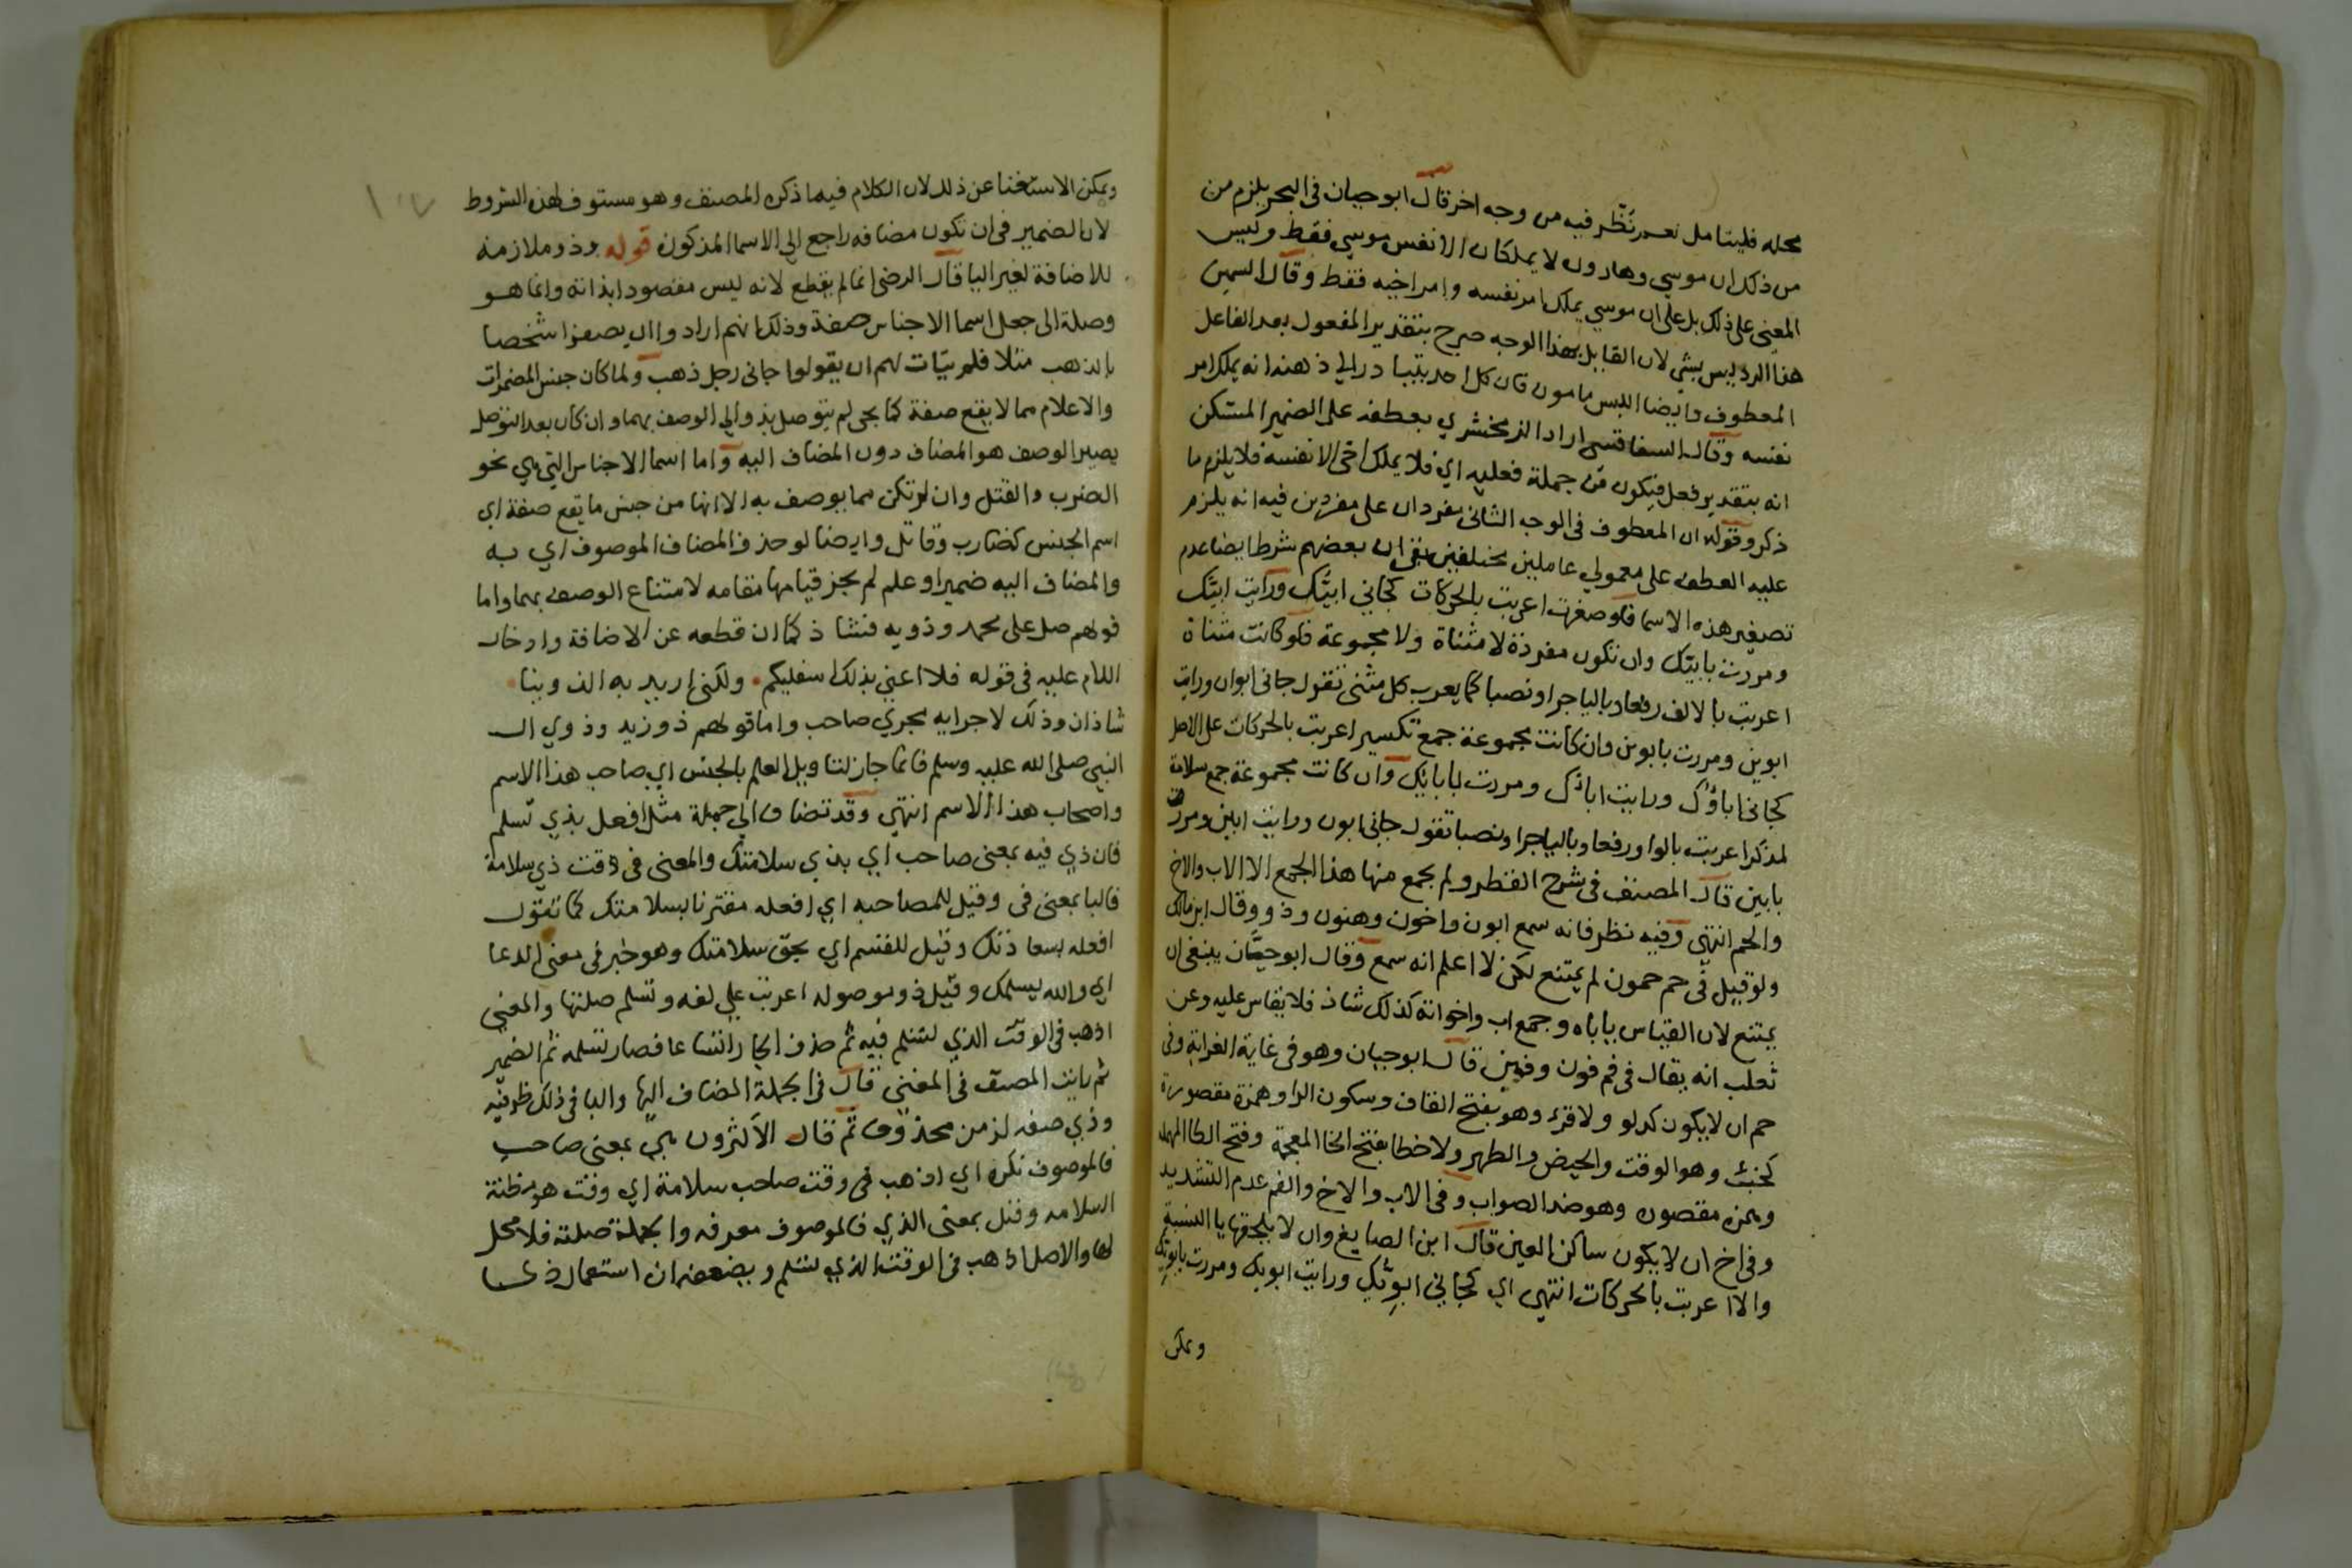 محله فليتامل نعم نظر فيه من وجه اخر قال ابو حيان في البحر يلزم من
من ذلك ان موسي وهارون لا يملكان الا نفس موسي فقط وليس
المعني على ذلك بل على ان موسي يملك امر نفسه وامر اخيه فقط وقال السمين
هذا الرد ليس بشي لان القايل بهذا الوجه صرح بتقدير المفعول بعد الفاعل
المعطوف وايضا اللبس مامون فان كل احد يتبادر الي ذهنه انه يملك امر
نفسه وقال السفاقسي اراد الزمخشري بعطفه على الضمير المستكن
انه بتقدير فعل فيكون من جملة فعليه اي فلا يملك اخي الا نفسه فلا يلزم ما
ذكر وقوله ان المعطوف في الوجه الثاني مفردان على مفردين فيه انه يلزم
عليه العطف على معمولي عاملين مختلفين بقي ان بعضهم شرط ايضا عدم
تصغير هذه الاسما فلو صغرت اعربت بالحركات كجاني ابيّك ورايت ابيّك
ومررت بابيّك وان تكون مفردة لا مثناة ولا مجموعة فلو كانت مثناة
اعربت بالالف رفعا وباليا جرا ونصبا كما يعرب كل مثنى تقول جاني ابوان ورايت
ابوين ومررت بابوين وان كانت مجموعة جمع تكسير اعربت بالحركات على الاصل
كجاني اباؤك ورايت اباك ومررت بابايك وان كانت مجموعة جمع سلامة
لمذكر اعربت بالواو رفعا وباليا جرا ونصبا تقول جاني ابون ورايت ابين ومررت
بابين قال المصنف في شرح القطر ولم يجمع منها هذا الجمع الا الاب والاخ
والحم انتهي وفيه نظر فانه سمع ابون واخون وهنون وذوو وقال ابن مالك
ولو قيل في حم حمون لم يمتنع لكن لا اعلم انه سمع وقال ابو حيان ينبغي ان
يمتنع لان القياس ياباه وجمع اب واخواته كذلك شاذ فلا يقاس عليه وعن
ثعلب انه يقال في فم فون وفين قال ابو حيان وهو في غاية الغرابة وفي
حم ان لا يكون كدلو ولا قرء وهو بفتح القاف وسكون الرا وهمزة مقصورة
كخبث وهو الوقت والحيض والطهر ولا خطا بفتح الخا المعجمة وفتح الطا المهملة
وهمزة مقصورة وهو ضد الصواب وفي الاب والاخ والفم عدم التشديد
وفي اخ ان لا يكون ساكن العين قال ابن الصايغ وان لا يلحقها يا النسبة
والا اعربت بالحركات انتهى اي كجاني ابويّك ورايت ابويك ومررت بابويك
ويمكن
ويمكن الاستغنا عن ذلك لان الكلام فيما ذكره المصنف وهو مستوف لهذه الشروط
لان الضمير في ان تكون مضافه راجع الي الاسما المذكورة قوله وذو ملازمة
للاضافة لغير اليا قال الرضي انما لم يقطع لانه ليس مقصودا بذاته وانما هو
وصلة الى جعل اسما الاجناس صفة وذلك انهم ارادوا ان يصفوا شخصا
بالذهب مثلا فلم يتات لهم ان يقولوا جاني رجل ذهب ولما كان جنس المضمرات
والاعلام مما لا يقع صفة كما يجي لم يتوصل بذو الي الوصف بهما وان كان بعد التوصل
يصير الوصف هو المضاف دون المضاف اليه واما اسما الاجناس التي هي نحو
الضرب والقتل وان لم تكن مما يوصف به الا انها من جنس ما يقع صفة اي
اسم الجنس كضارب وقاتل وايضا لو حذف المضاف الموصوف اي به
والمضاف اليه ضمير او علم لم يجز قيامها مقامه لامتناع الوصف بهما واما
قولهم صل على محمد وذويه فشاذ كما ان قطعه عن الاضافة وادخال
اللام عليه في قوله فلا اعني بذلك اسفليكم ولكني اريد به الذوينا
شاذان وذلك لاجرايه مجري صاحب واما قولهم ذو زيد وذوي ال
النبي صلى الله عليه وسلم فانما جاز لتاويل العلم بالجنس اي صاحب هذا الاسم
واصحاب هذا الاسم انتهي وقد تضاف الي جملة مثل افعل بذي تسلم
فان ذي فيه بمعنى صاحب اي بذي سلامتك والمعنى في وقت ذي سلامة
فالبا بمعنى في وقيل للمصاحبه اي افعله مقترنا بسلامتك كما تقول
افعله بسعادتك وقيل للقسم اي بحق سلامتك وهو خبر في معنى الدعا
اي والله يسلمك وقيل ذو موصوله اعربت علي لغه وتسلم صلتها والمعني
اذهب في الوقت الذي تسلم فيه ثم حذف الجار اتساعا فصار تسلمه ثم الضمير
ثم رايت المصنف في المغني قال في الجملة المضاف اليها والبا في ذلك ظرفيه
وذي صفه لزمن محذوف ثم قال الاكثرون هي بمعنى صاحب
فالموصوف نكره اي اذهب في وقت صاحب سلامة اي وقت هو مظنة
السلامه وقيل بمعنى الذي فالموصوف معرفه والجملة صلته فلا محل
لها والاصل اذهب في الوقت الذي تسلم ويضعفه ان استعمال ذي